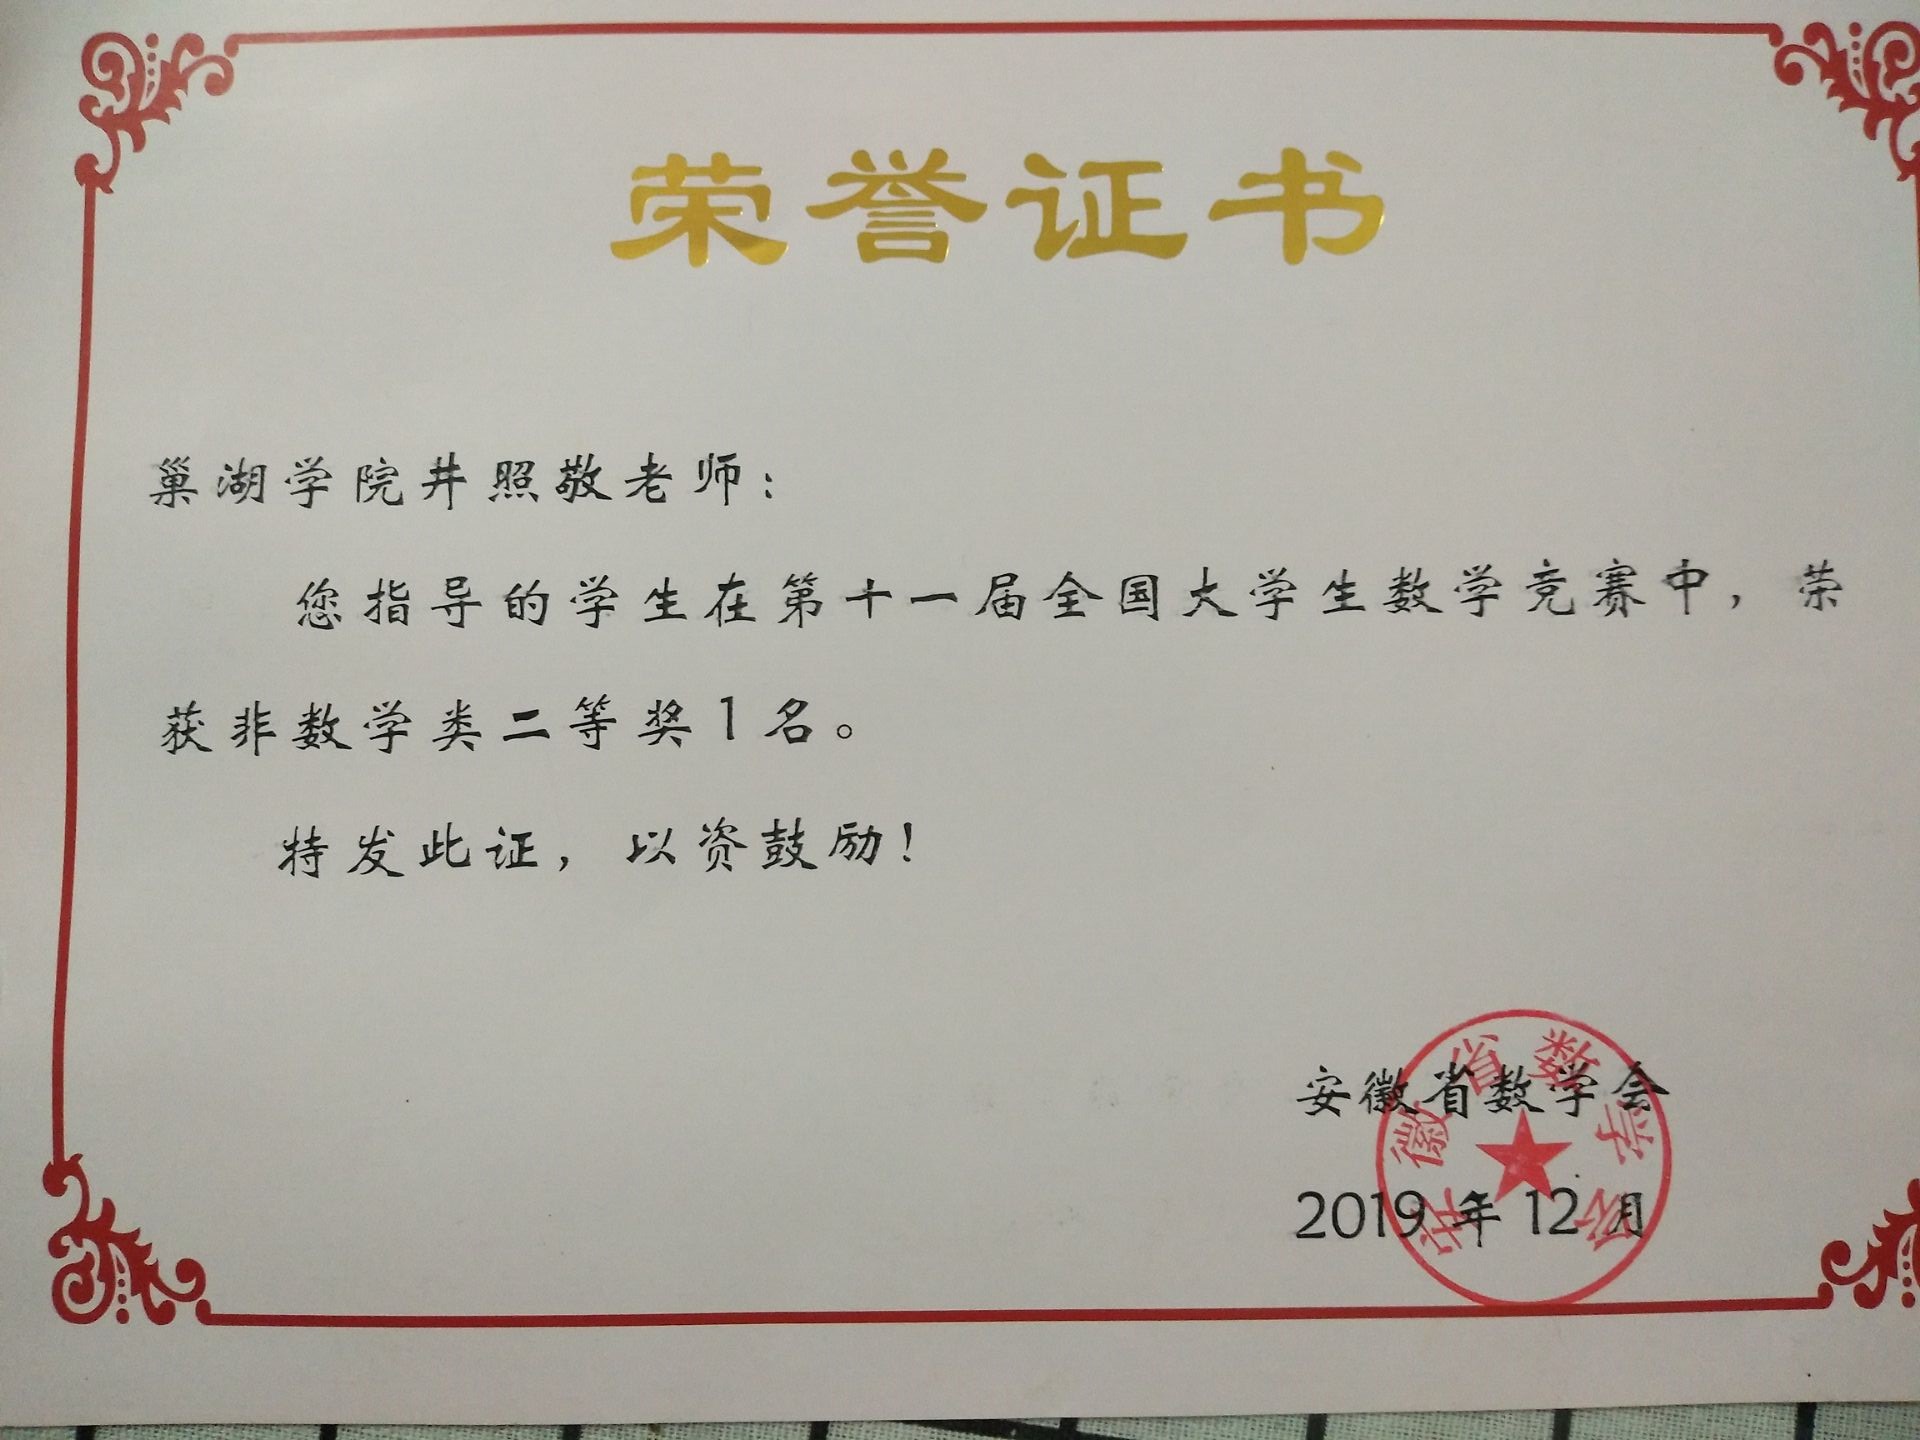 荣誉证书
巢湖学院井照敬老师：
您指导的学生在第十一届全国大学生数学竞赛中，荣
获非数学类二等奖1名。
特发此证，以资鼓励！
安徽省数学会
2019年12月
安徽省数学会